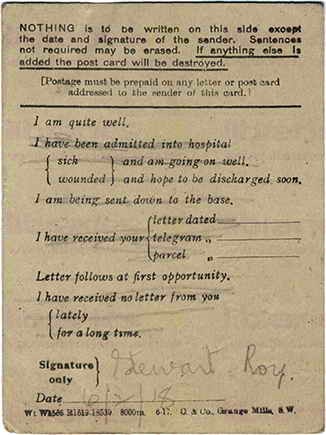 NOTHING is to be written on this side except
the date and signature of the sender. Sentences
not required may be erased. If anything else is
added the post card will be destroyed.
[Postage must be prepaid on any letter or post card
addressed to the sender of this card.]
I am quite well.
I have been admitted into hospital
sick and am going on well.
wounded and hope to be discharged soon.
I am being sent down to the base.
letter dated
I have received your telegram „
parcel „
Letter follows at first opportunity.
I have received no letter from you
lately
for a long time.
Signature only Stewart Roy.
Date 6/2/18
Wt W1566 R1619-18539 8000m. 6-17. C. & Co., Grange Mills, S.W.